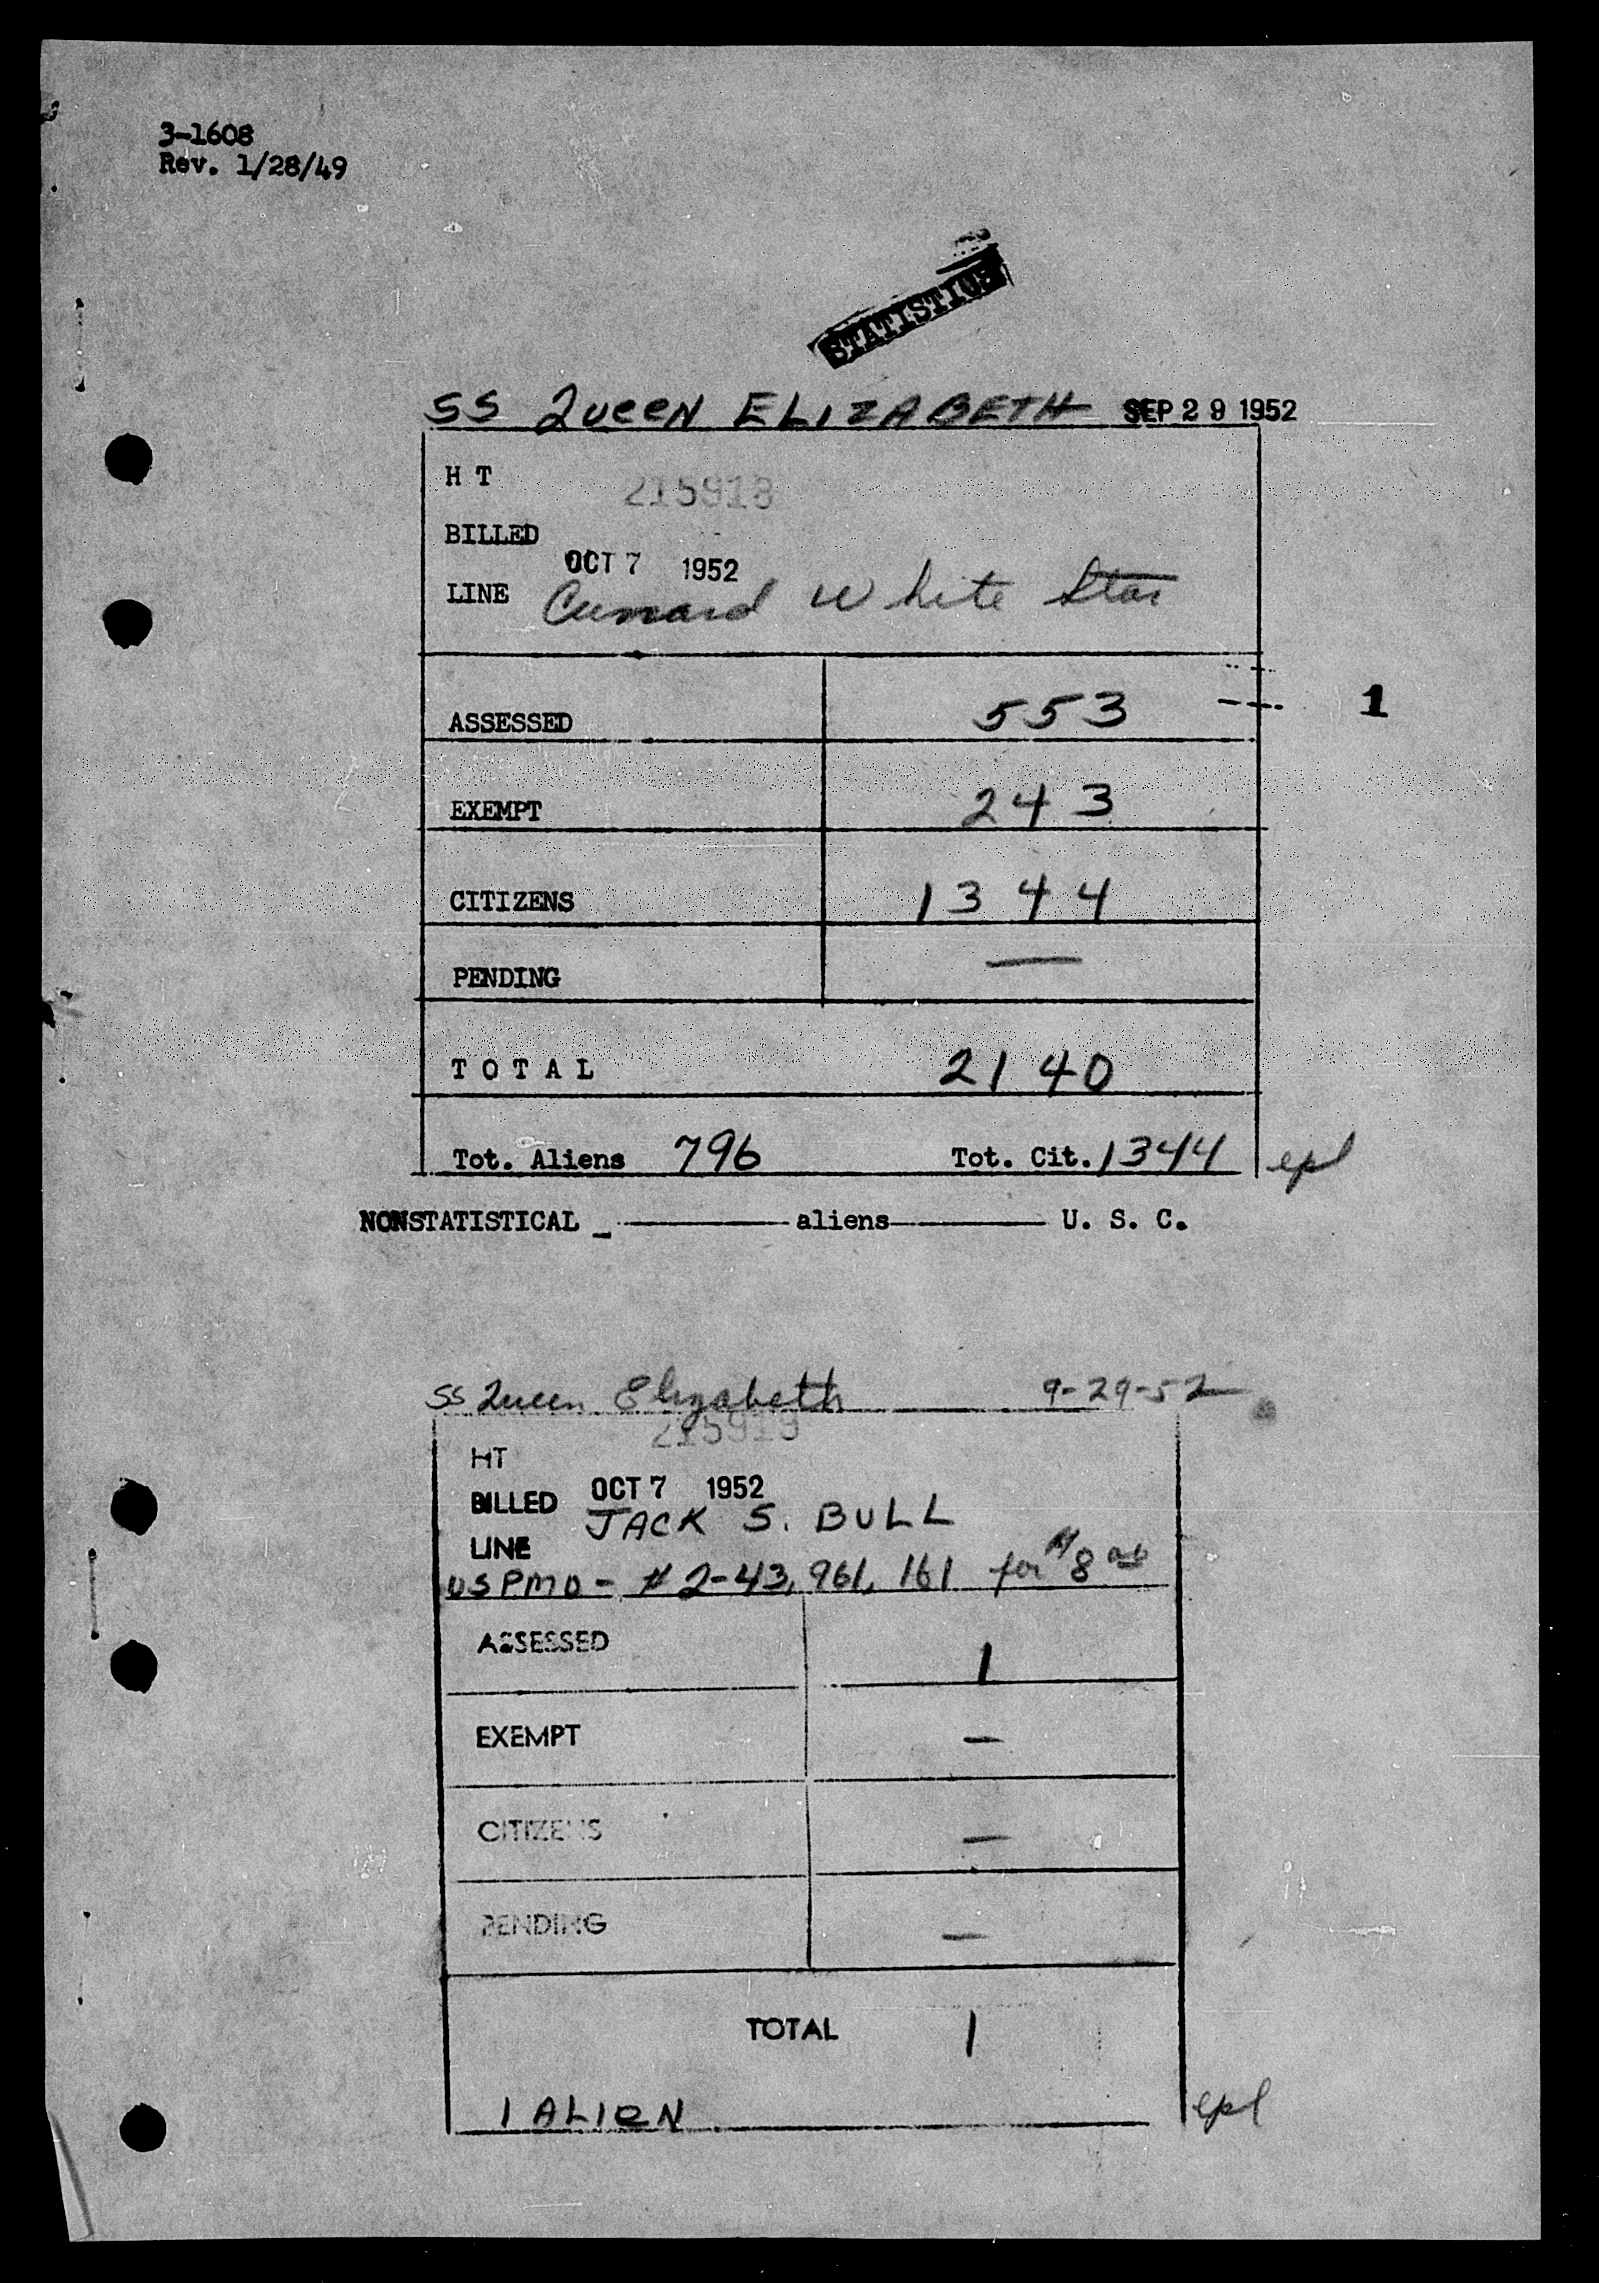 3-1608
Rev. 1/28/49
STATISTICS
SS QUEEN ELIZABETH SEP 29 1952
H T 215918
BILLED
OCT 7 1952
LINE Cunard White Star
ASSESSED 553 1
EXEMPT 243
CITIZENS 1344
PENDING —
TOTAL 2140
Tot. Aliens 796 Tot. Cit. 1344 epl
NONSTATISTICAL _ aliens U. S. C.
SS Queen Elizabeth 9-29-52
215919
HT
BILLED OCT 7 1952
JACK S. BULL
LINE
USPMO - # 2-43,961,161 for $8 00
ASSESSED 1
EXEMPT —
CITIZENS —
PENDING —
TOTAL 1
1 ALIEN epl